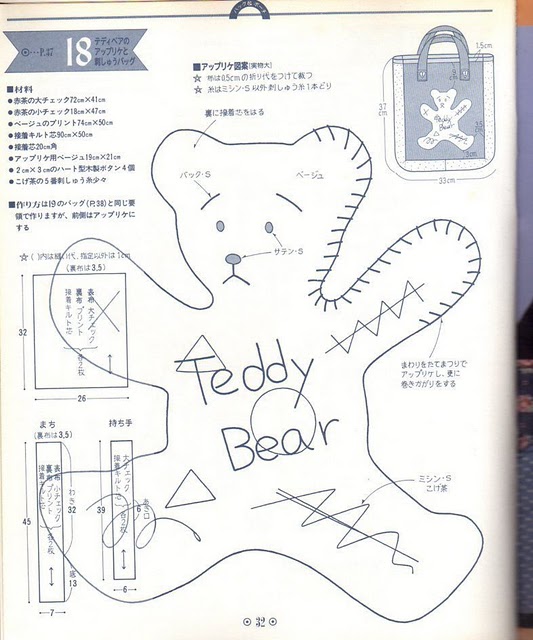 バッグ&ポーチ
⊙…P.37
18
テディベアの
アップリケと
刺しゅうバッグ
■材料
●赤茶の大チェック72cm×41cm
●赤茶の小チェック18cm×47cm
●ベージュのプリント74cm×50cm
●接着キルト芯90cm×50cm
●接着芯20cm角
●アップリケ用ベージュ19cm×21cm
●2cm×3cmのハート型木製ボタン4個
●こげ茶の5番刺しゅう糸少々
■作り方は19のバッグ(P.38)と同じ要
領で作りますが、前側はアップリケに
する
■アップリケ図案(実物大)
☆ 布は0.5cmの折り代をつけて裁つ
☆ 糸はミシン・S以外刺しゅう糸1本どり
裏に接着芯をはる
バック・S
ベージュ
サテン・S
1.5cm
37cm
33cm
3cm
Teddy
Bear
☆( )内は縫い代、指定以外は1cm
(裏布は3.5)
表布 大チェック
裏布 プリント
接着キルト芯
各2枚
32
26
まわりをたてまつりで
アップリケし、更に
巻きがかりをする
Teddy
Bear
まち
(裏布は3.5)
表布 小チェック
裏布 プリント
接着キルト芯
各2枚
45
わき
32
底
13
7
持ち手
大チェック
接着キルト芯
各2枚
39
あき口
6
6
ミシン・S
こげ茶
⊙ 32 ⊙